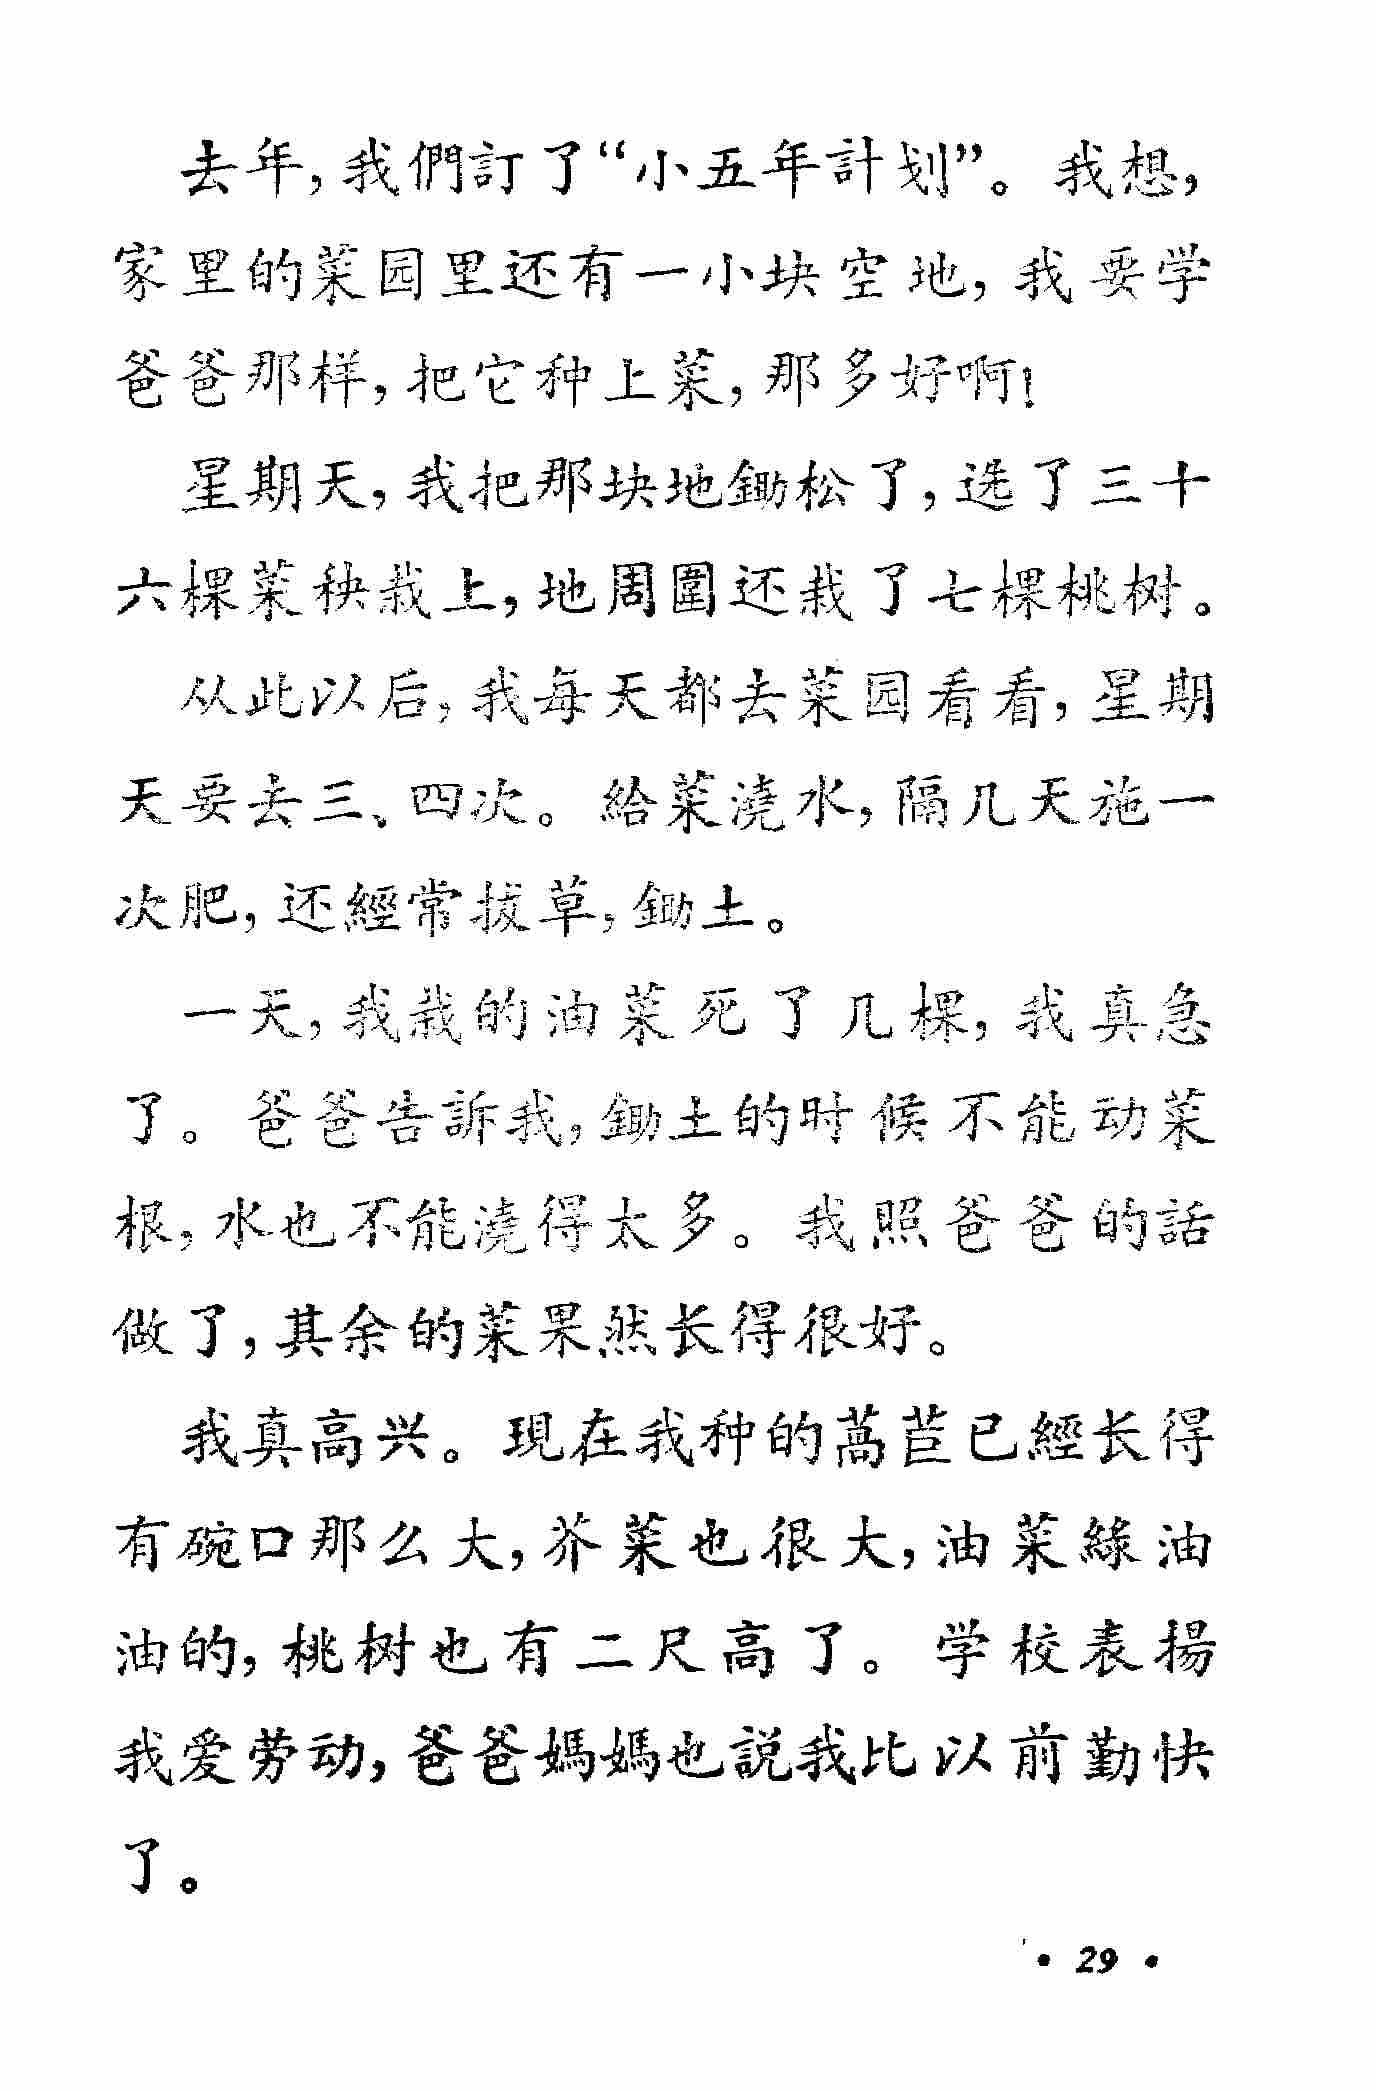 去年，我們訂了“小五年計划”。我想，
家里的菜园里还有一小块空地，我要学
爸爸那样，把它种上菜，那多好啊！
星期天，我把那块地鋤松了，选了三十
六棵菜秧栽上，地周圍还栽了七棵桃树。
从此以后，我每天都去菜园看看，星期
天要去三、四次。給菜澆水，隔几天施一
次肥，还經常拔草，鋤土。
一天，我栽的油菜死了几棵，我真急
了。爸爸告訴我，鋤土的时候不能动菜
根，水也不能澆得太多。我照爸爸的話
做了，其余的菜果然长得很好。
我真高兴。現在我种的萵苣已經长得
有碗口那么大，芥菜也很大，油菜綠油
油的，桃树也有二尺高了。学校表揚
我爱劳动，爸爸媽媽也説我比以前勤快
了。
· 29 ·